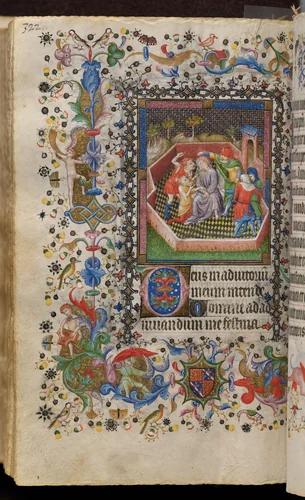 322
Deus in adiutoriũ
meum intende
Domine ad ad
iuuandum me festina